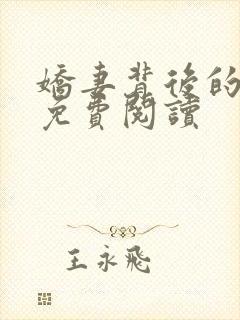 嬌妻背後的
免費閱讀
王永飛